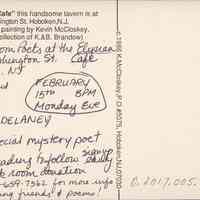 Cafe" this handsome tavern is at
hington St. Hoboken, N.J.
painting by Kevin McCloskey.
ollection of K.&B. Brandow)
om Poets at the Elysian
hington St. Cafe
N.J.
FEBRUARY
15TH 8PM
Monday Eve
DELANEY
ecial mystery poet
ading to follow signup
k room donation
659-7362 for more info
ng friends & poems,
c.1986 K.McCloskey, P.O. #5075, Hoboken, NJ, 07030
2017.005.